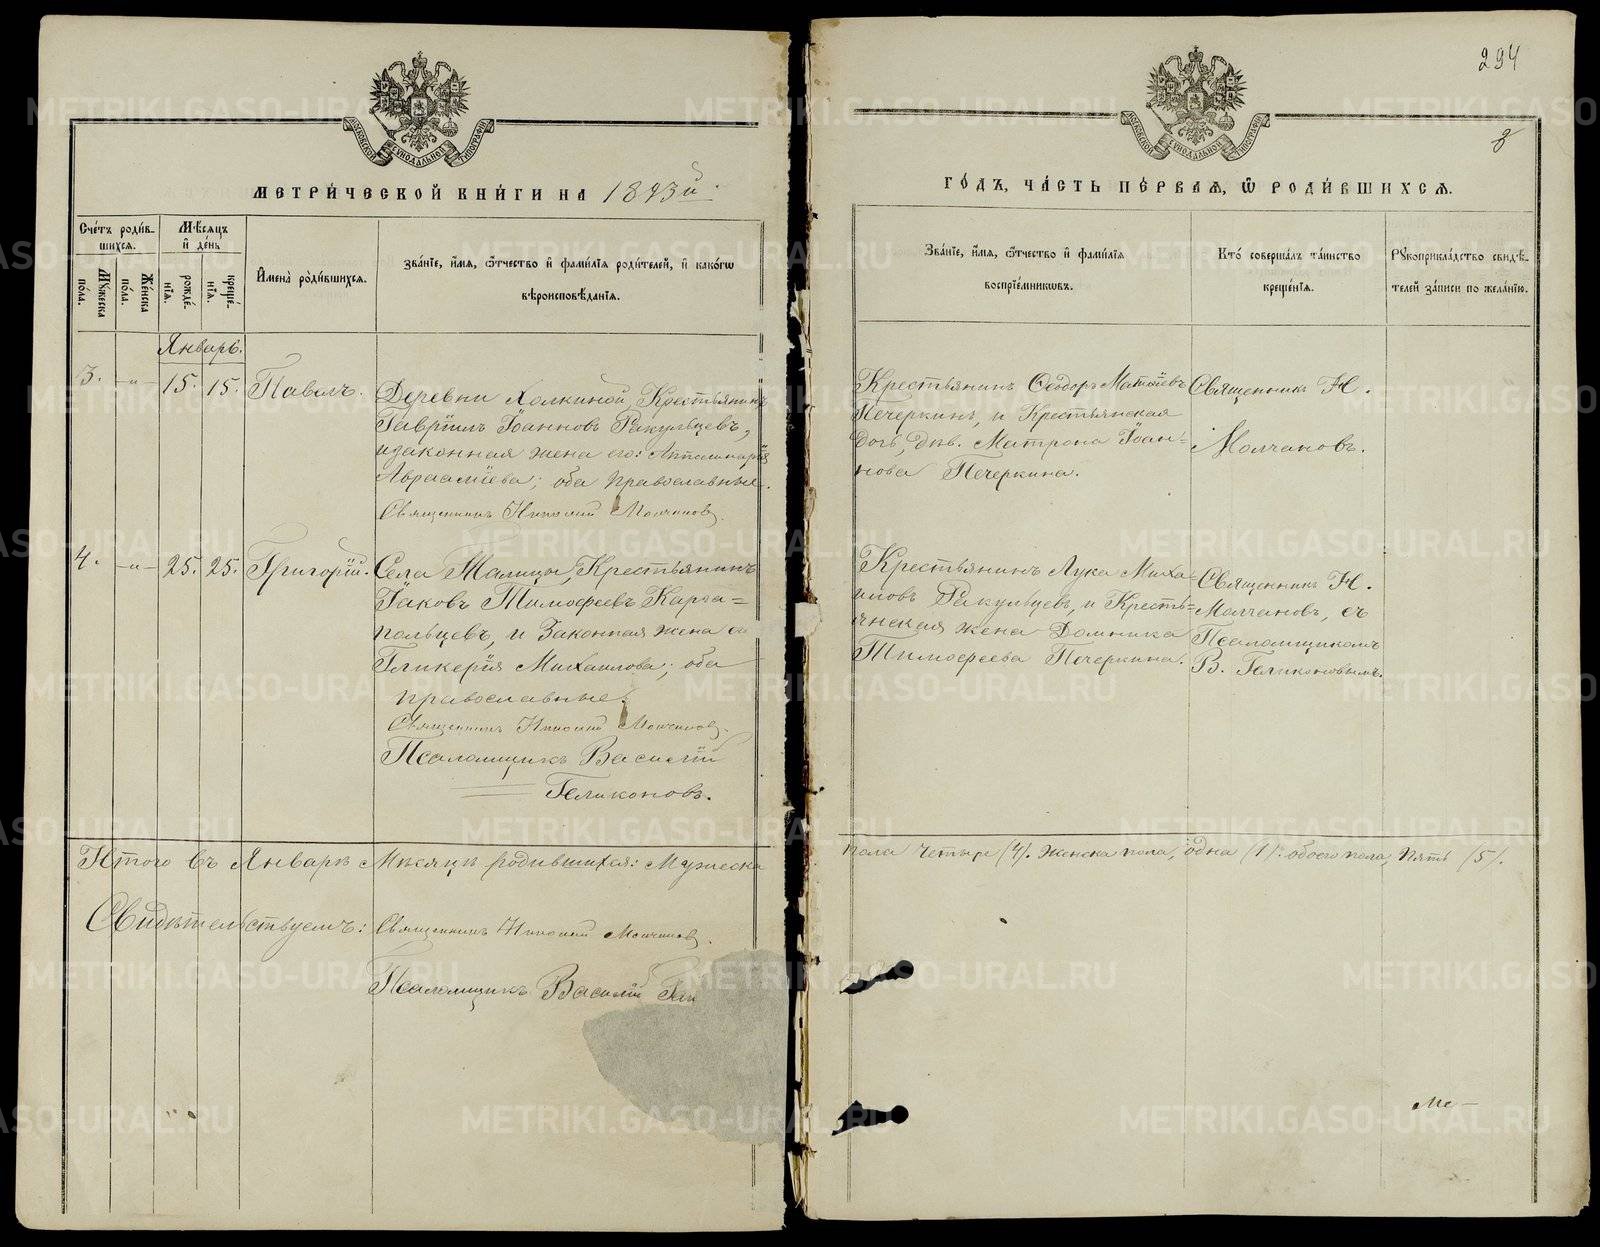 294
8
МОСКОВСКОЙ СѴНОДАЛЬНОЙ ТИПОГРАФІИ
МОСКОВСКОЙ СѴНОДАЛЬНОЙ ТИПОГРАФІИ
МЕТРИ́ЧЕСКОЙ КНИ́ГИ НА 1893й
ГО́ДЪ, ЧА́СТЬ ПЕ́РВАЯ, Ѿ РОДИ́ВШИХСЯ.
Сче́тъ роди́в-
шихся.
Мѣ́сяцъ
и҆ де́нь
Му́жеска
по́ла.
Же́нска
по́ла.
рожде́-
нїя.
креще́-
нїя.
И҆мена̀ роди́вшихся.
Зва́нїе, и҆́мя, ѻ҆́тчество и҆ фами́лїя роди́телей, и҆ како́гѡ
вѣроисповѣ́данїя.
Зва́нїе, и҆́мя, ѻ҆́тчество и҆ фами́лїя
воспрїе́мникѡвъ.
Кто́ соверша́лъ та́инство
креще́нїя.
Рꙋкоприкла́дство свидѣ́-
телей за́писи по жела́нїю.
Январь.
3. -„- 15. 15. Павелъ.
Деревни Холкиной, Крестьянинъ
Гаврíилъ Іоанновъ Ракульцевъ,
и законная жена его: Апполинарія
Авраамíева; оба православные.
Священникъ Николай Молчановъ.
Крестьянинъ Ѳеодоръ Матѳíевъ
Печеркинъ, и Крестьянская
дочь, дѣв. Матрона Іоан=
нова Печеркина.
Священникъ Н.
Молчановъ.
4. -„- 25. 25. Григорíй.
Села Жалицы, Крестьянинъ
Іаковъ Тимофеевъ Карга=
польцевъ, и Законная жена ег
Гликерíя Михаилова; оба
православные.
Священникъ Николай Молчановъ.
Псаломщикъ Василíй
Геликоновъ.
Крестьянинъ Лука Миха
иловъ Ракульцевъ, и Кресть=
янская жена Домника
Тимофеева Печеркина.
Священникъ Н.
Молчановъ, съ
Псаломщикомъ
В. Геликоновымъ.
Итого въ Январѣ мѣсяцѣ родившихся: Мужеска
пола четыре (4). женска пола, одна (1). обоего пола, пять (5).
Свидѣтельствуемъ: Священникъ Николай Молчановъ.
Псаломщикъ Василíй Гели
Ме-
METRIKI.GASO-URAL.RU